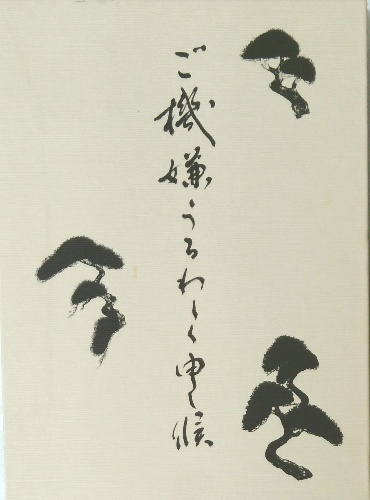 ご機嫌うるわしく申し候